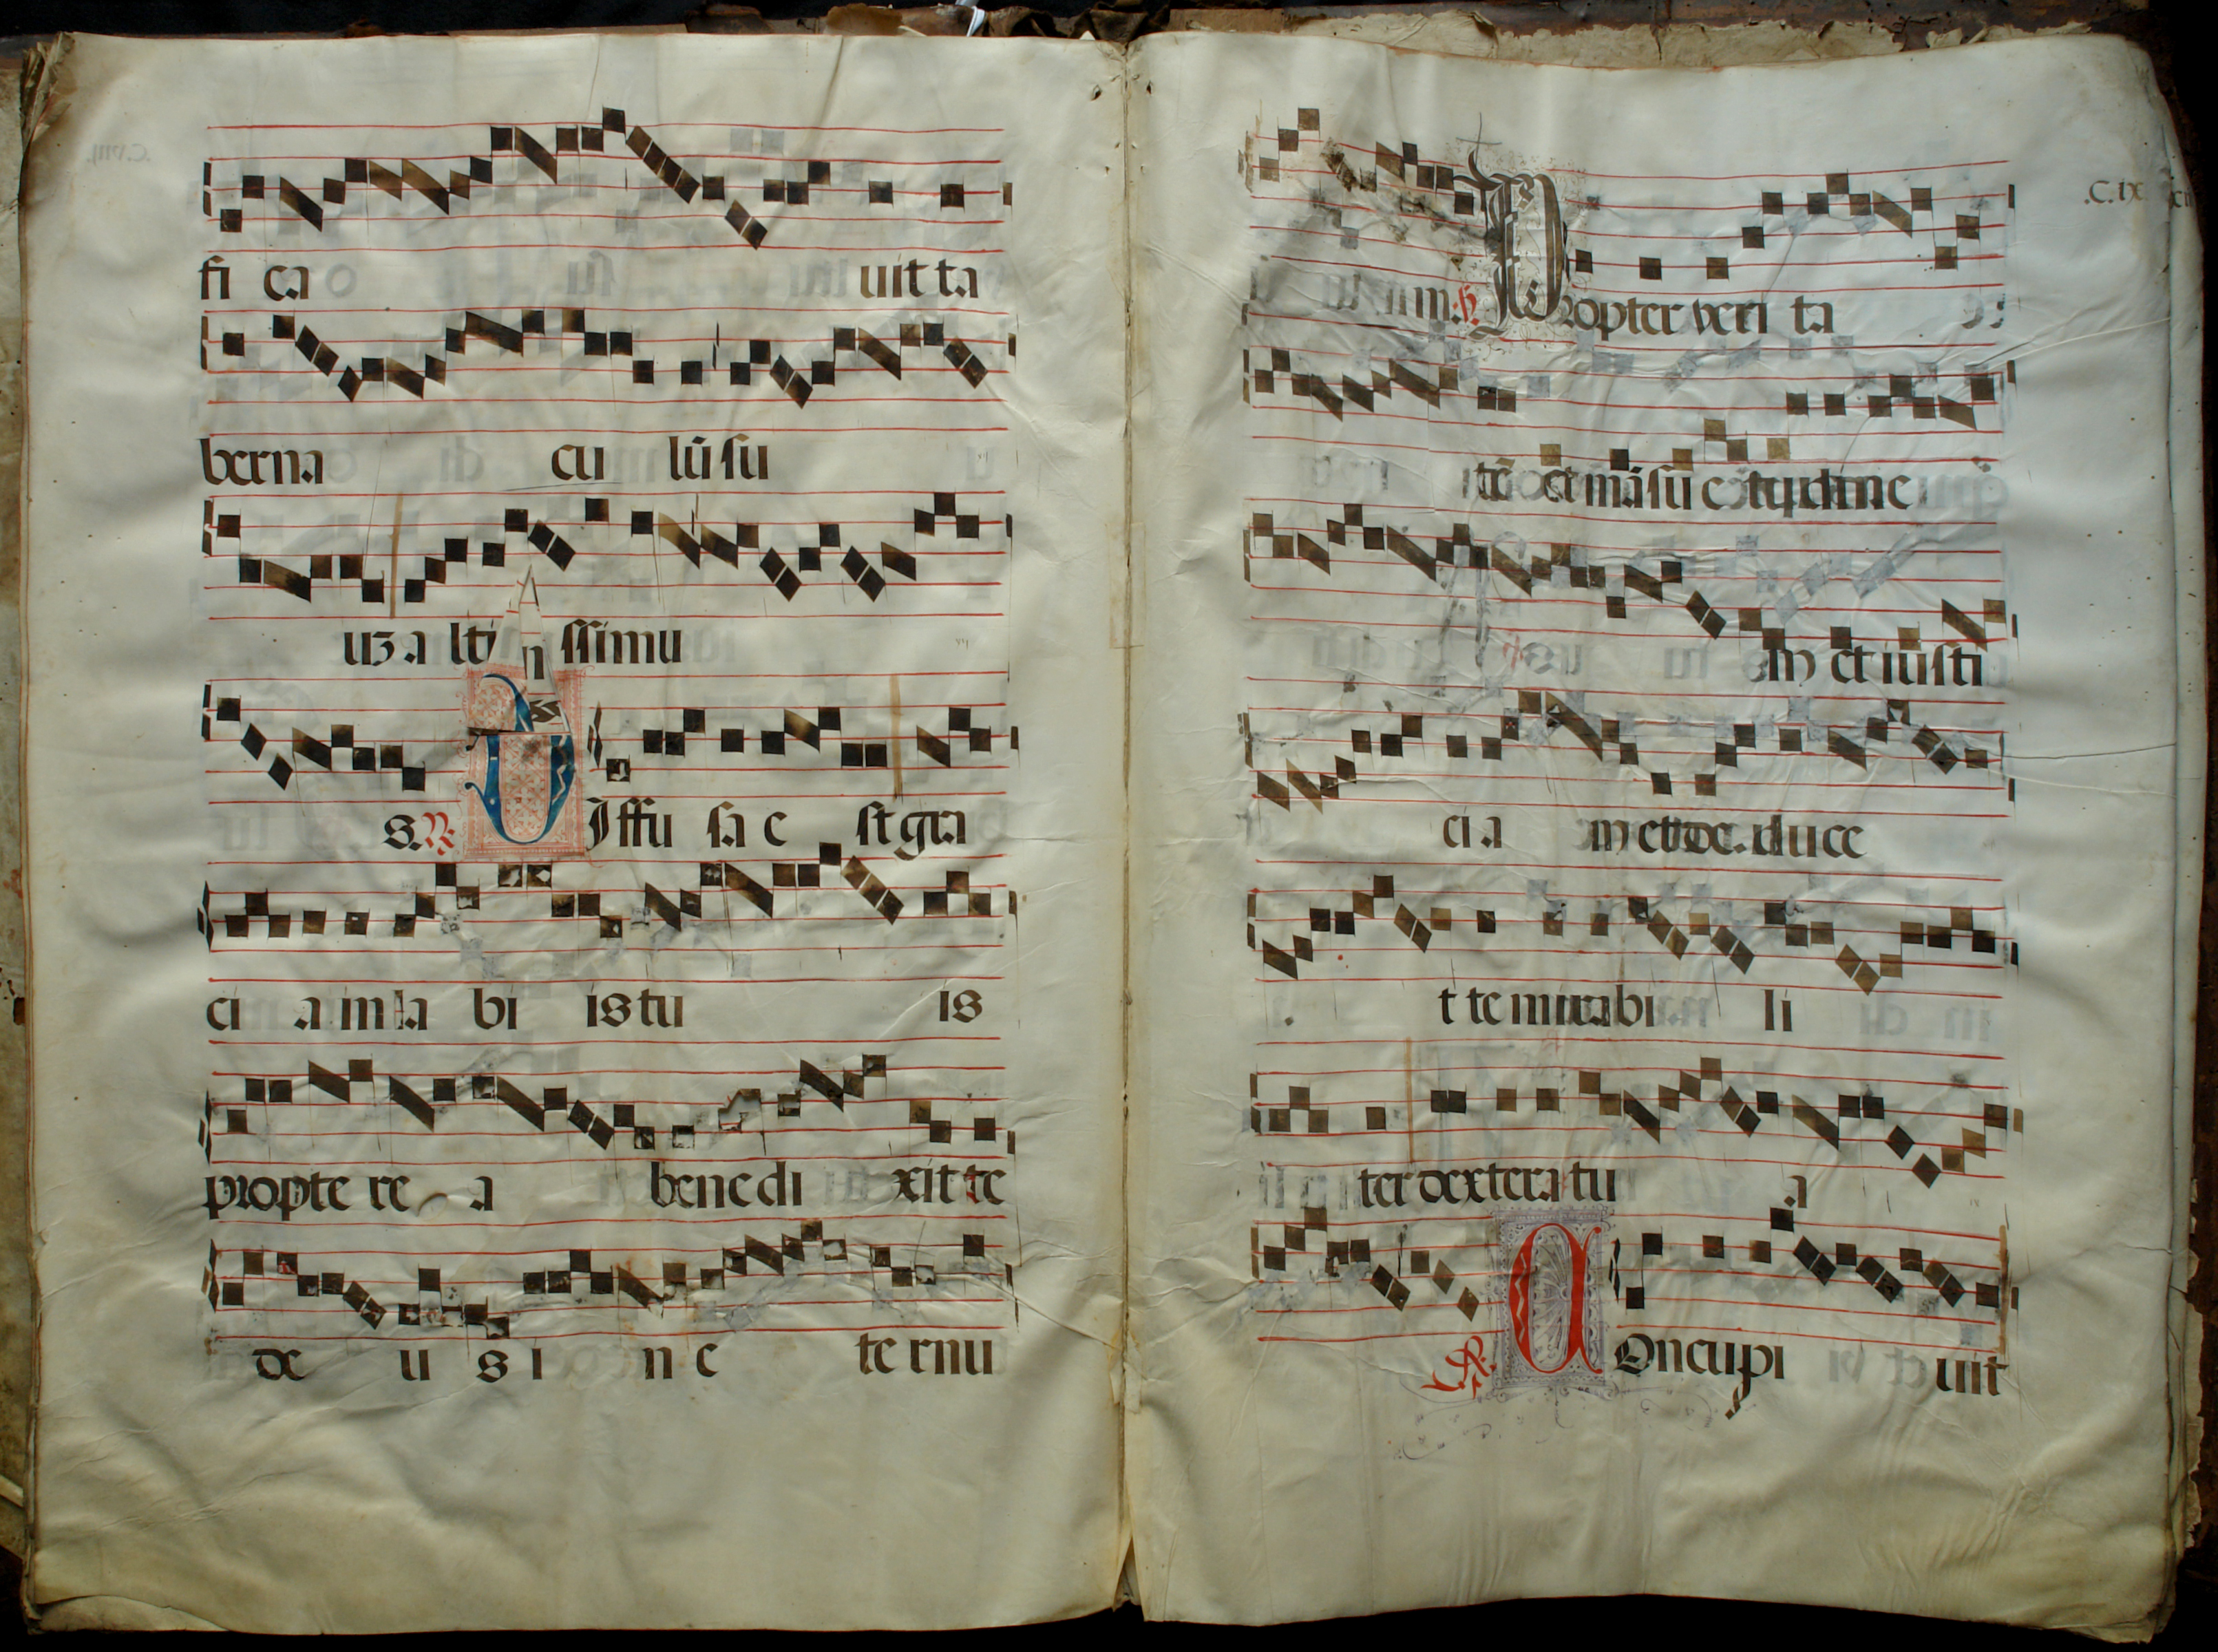 fi ca uit ta
berna cu lū su
uʒ a lti ssimu
s. ℟. Diffu sa e st gra
ci a in la bi is tu is
propte re a benedi xit te
de u s i n e te rnu
.C.ix
m: ℣. Propter veri ta
tē et māsu etudine
m et iusti
ci a m et de. duce
t te mirabi li
ter dextera tu a
℟. Concupi uit